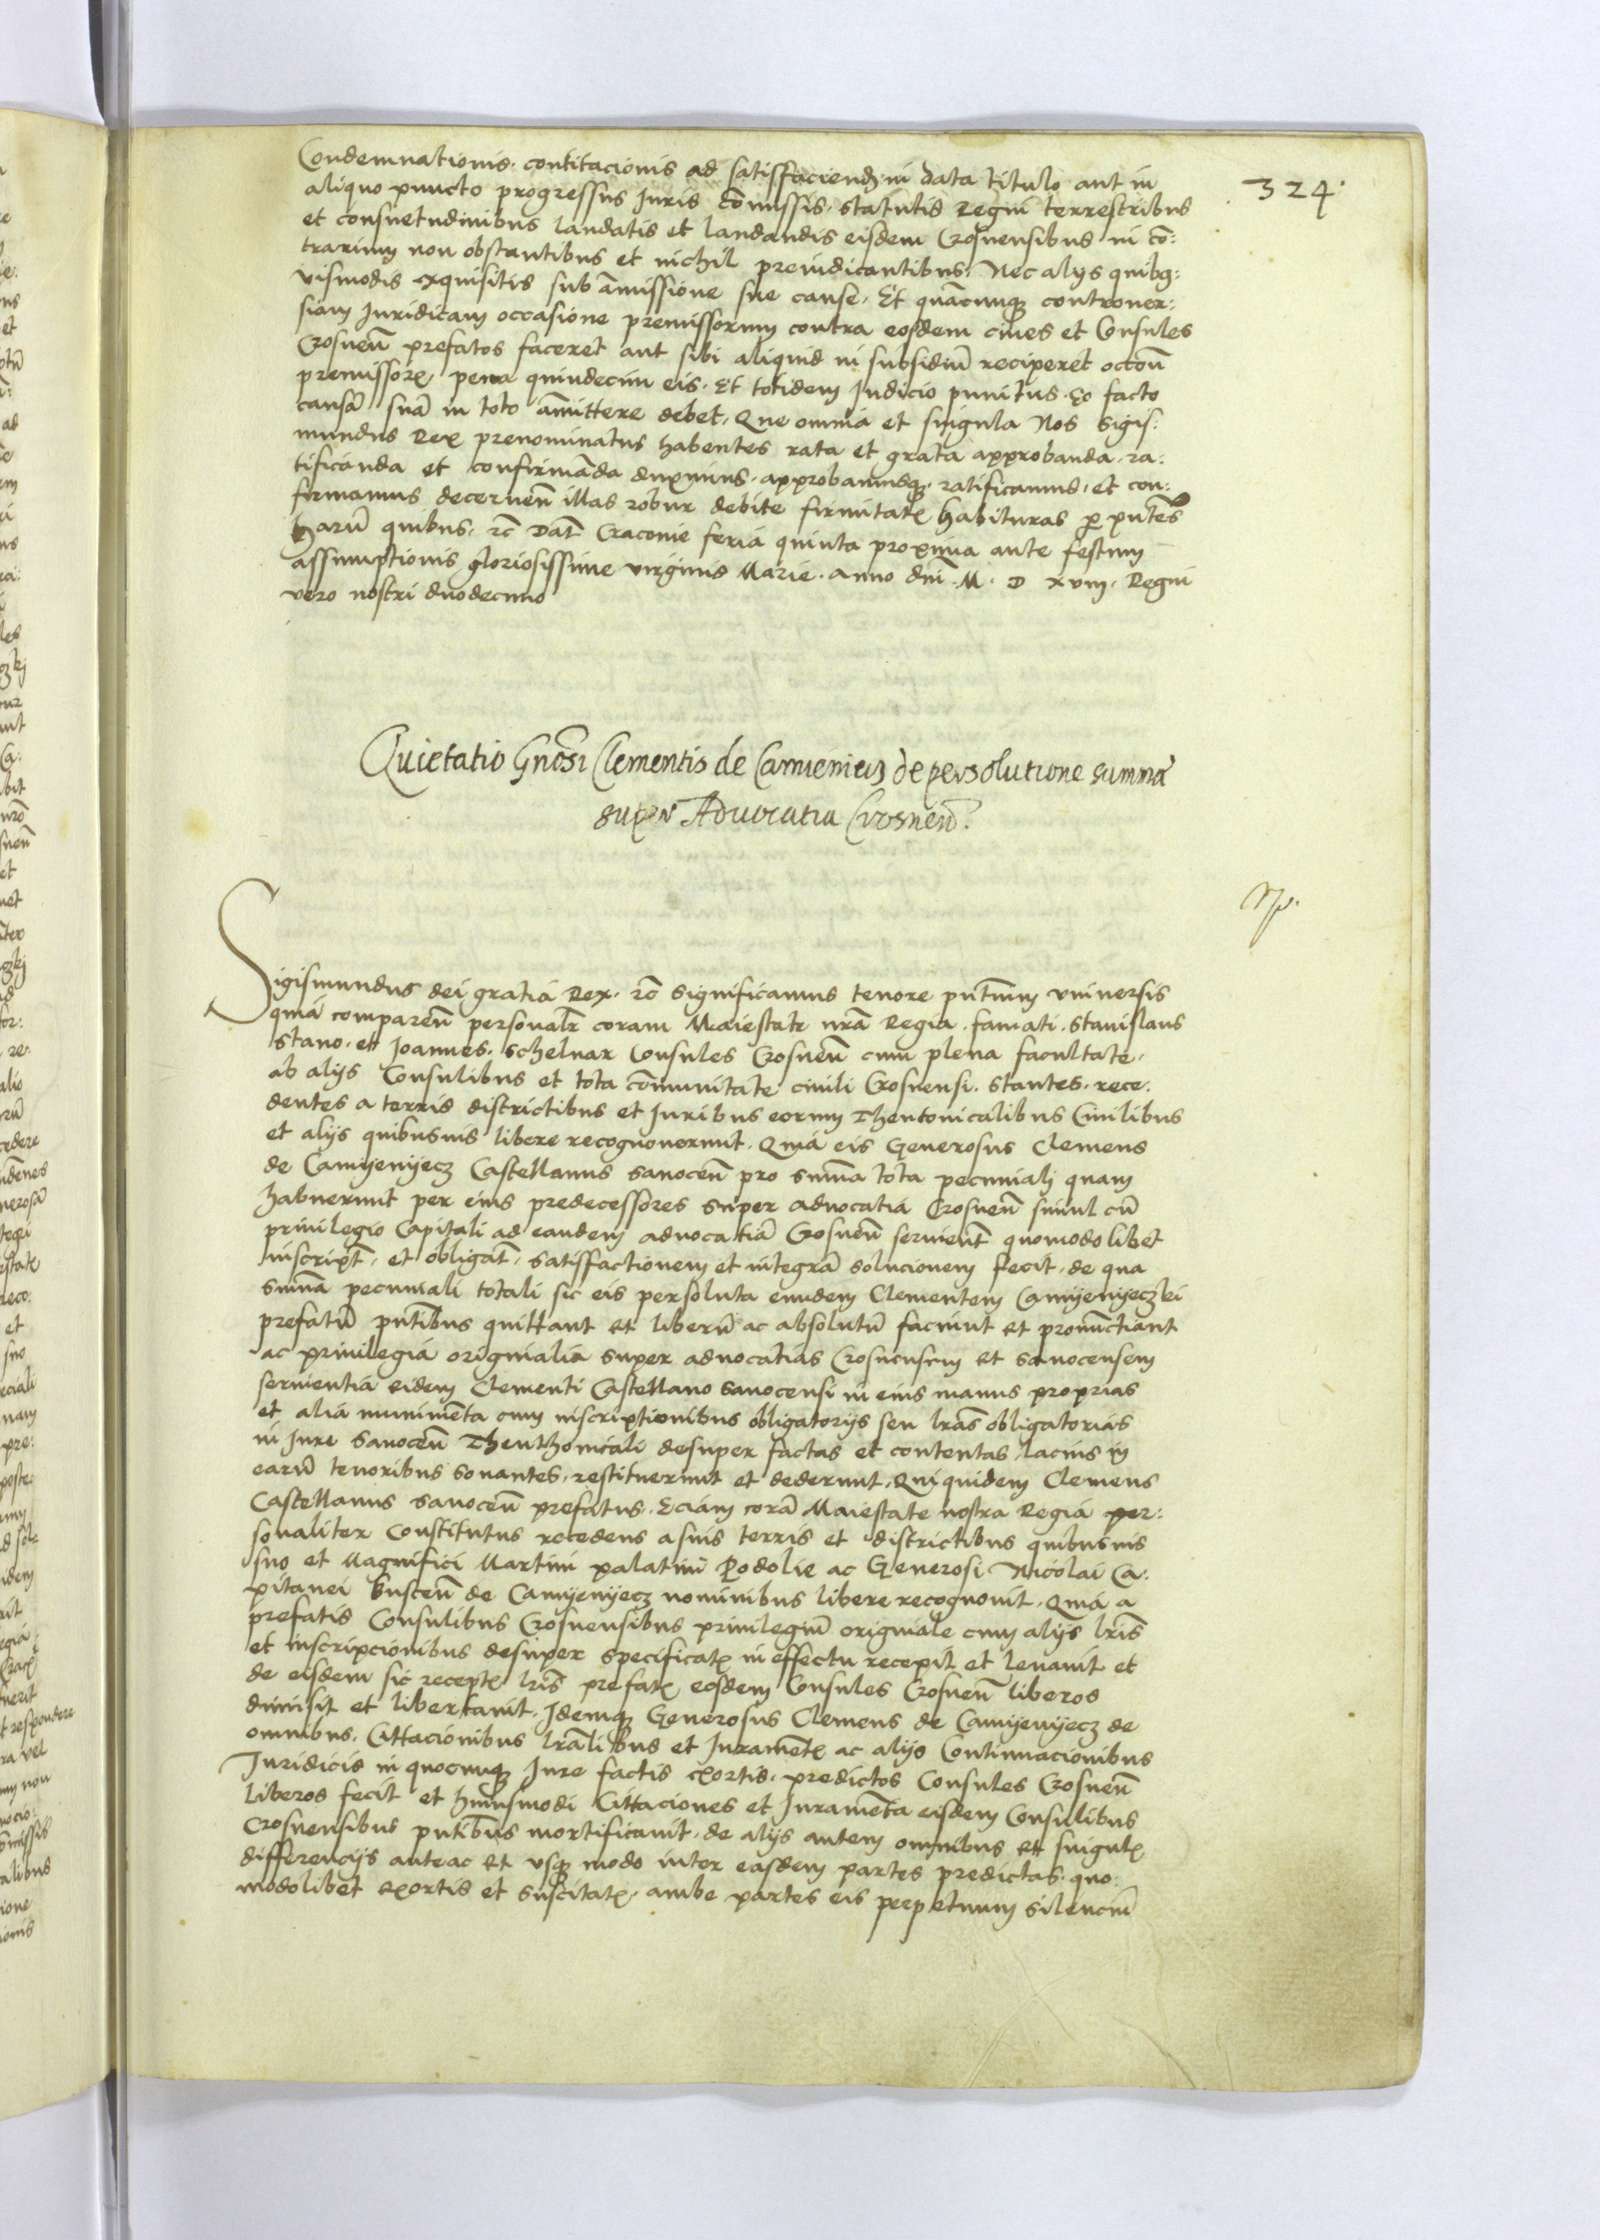 324
Condemnationis. contitacionis ad satisffaciendū in data titulo aut in
aliquo puncto progressus Juris cōmissis. statutis Regni terrestribus
et consuetudinibus laudatis et laudandis eisdem Crosnensibus in cō:
trarium non obstantibus et nichil preiudicantibus. Nec alijs quibus:
vismodis exquisitis sub āmissione sue cause. Et quācunque controuer:
siam Juridicam occasione premissorum contra eosdem ciues et Consules
Crosneñ prefatos faceret aut sibi aliquid in subsidiū reciperet occoñ
premissorꝝ pena quindecim eis. Et totidem Judicio punitus. Eo facto
causā suā in toto āmittere debet. Que omnia et singula Nos Sigis:
mundus Rex prenominatus habentes rata et grata approbanda. ra:
tificanda et confirmāda duximus. approbamusque. ratificamus. et con:
firmamus decerneñ illas robur debite firmitatꝭ habituras per pñtes
harū quibus. rc̃ Dat̃ Cracovie feria quinta proxima ante festum
assumptionis gloriosissime virginis Marie. anno dñi. M. D xviij. Regni
vero nostri duodecimo
Quietatio Gñosi Clementis de Camieniecz de persolutione summæ
super Aduocatia Crosneñ.
Sigismundus dei gratia Rex. rc̃ significamus tenore pñtium vniuersis
quia compareñ personalr̃ coram Maiestate nr̃a Regia. famati. Stanislaus
Stano. et Joannes. Schelnar Consules Crosneñ cum plena facultate.
ab alijs Consulibus et tota cōmunitate ciuili Crosnensi. stantes. rece:
dentes a terris districtibus et Juribus eorum Theutonicalibus Ciuilibus
et alijs quibusuis libere recognouerunt. Quia eis Generosus Clemens
de Camyenyecz Castellanus Sanoceñ pro sum̃a tota pecuniali quam
habuerunt per eius predecessores super aduocatia Crosneñ simul cū
priuilegio Capitali ad eandem aduocatiā Crosneñ serуient̃ quomodolibet
inscript̃. et obligat̃. satisffactionem et integrā solucionem fecit. de qua
sum̃a pecuniali totali sic eis persoluta eundem Clementem Camyenyeczki
prefatū pñtibus quittant et liberū ac absolutū faciunt et pronūctiant
ac priuilegia originalia super aduocatias Crosnensem et Sanocensem
seruientia eidem Clementi Castellano Sanocensi in eius manus proprias
et alia munimēta cum inscriptionibus obligatorijs seu lr̃as obligatorias
in Jure Sanoceñ Theuthonicali desuper factas et contentas. lacius in
earū tenoribus sonantes. restituerunt et dederunt. Qui quidem Clemens
Castellanus Sanoceñ prefatus. Eciam corā Maiestate nostra Regia per:
sonaliter Constitutus recedens a suis terris et districtibus quibusuis
suo et Magnifici Martini palatini Podolie ac Generosi Nicolai Ca:
pitanei Busceñ de Camyenyecz nominibus libere recognouit. Quia a
prefatis Consulibus Crosnensibus priuilegiū originale cum alijs lr̃is
et inscripcionibus desuper specificatꝭ in effectu recepit et leuauit et
de eisdem sic receptꝭ lr̃is prefatꝭ eosdem Consules Crosneñ liberos
dimisit et libertauit. Idemque Generosus Clemens de Camyenyecz de
omnibus. Cittacionibus lr̃alibus et Juramentꝭ ac alijs Continuacionibus
Juridicis in quocunque Jure factis exortis. predictos Consules Crosneñ
liberos fecit et huiusmodi Cittaciones et Juramēta eisdem Consulibus
Crosnensibus pñtibus mortificauit. de alijs autem omnibus et singulꝭ
differencijs anteac et vsque modo inter easdem partes predictas. quo:
modolibet exortis et suscitatꝭ. ambe partes eis perpetuum silenciū